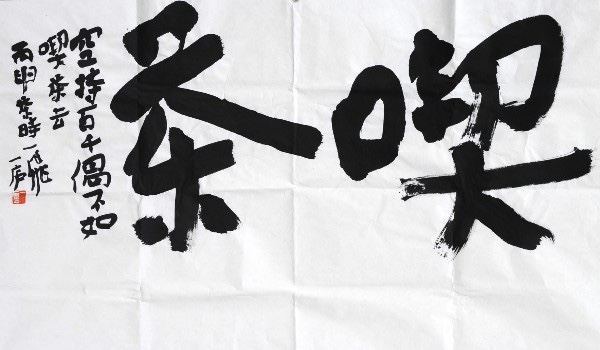 喫茶
空持百千偈不如
喫茶去
丙申時一